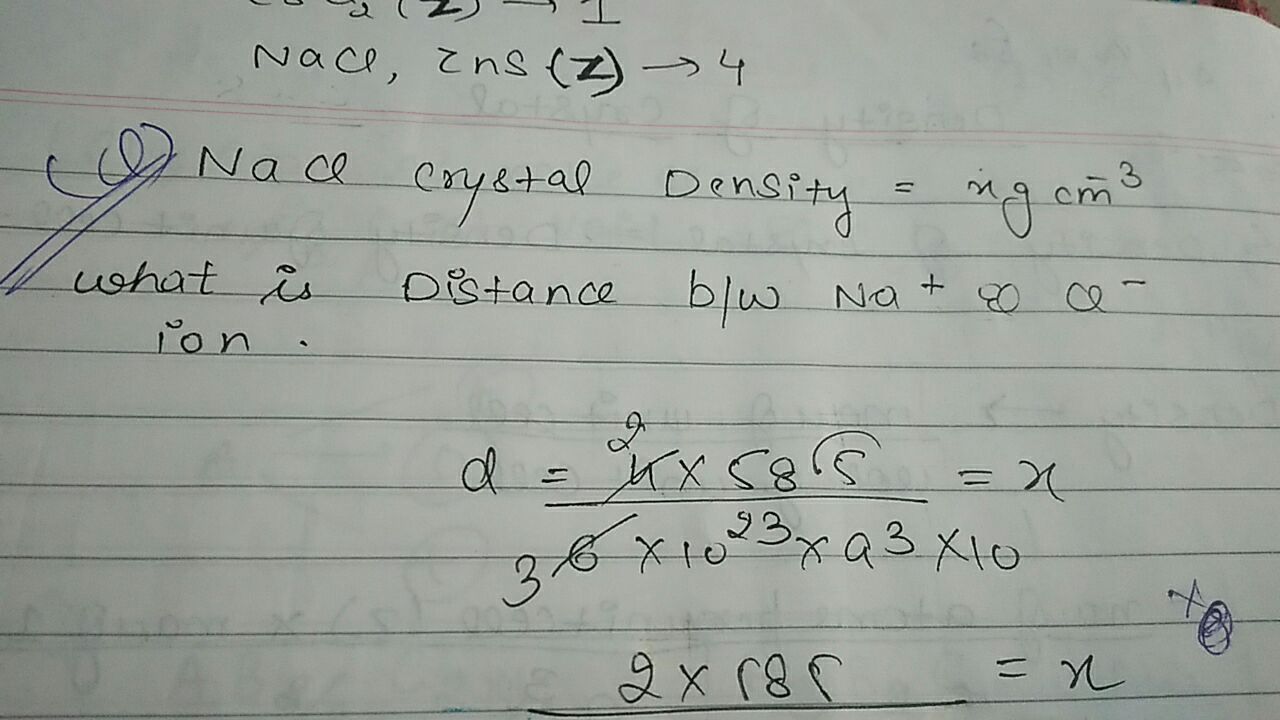 (Z) → 1
NaCl, Zns (Z) → 4
Q) NaCl Crystal Density = x g cm⁻³
what is Distance b/w Na+ & Cl⁻
ion.
2
d = 4 × 58 5 = x
3 6 × 10²³ × a³ × 10
2 × 585 = x